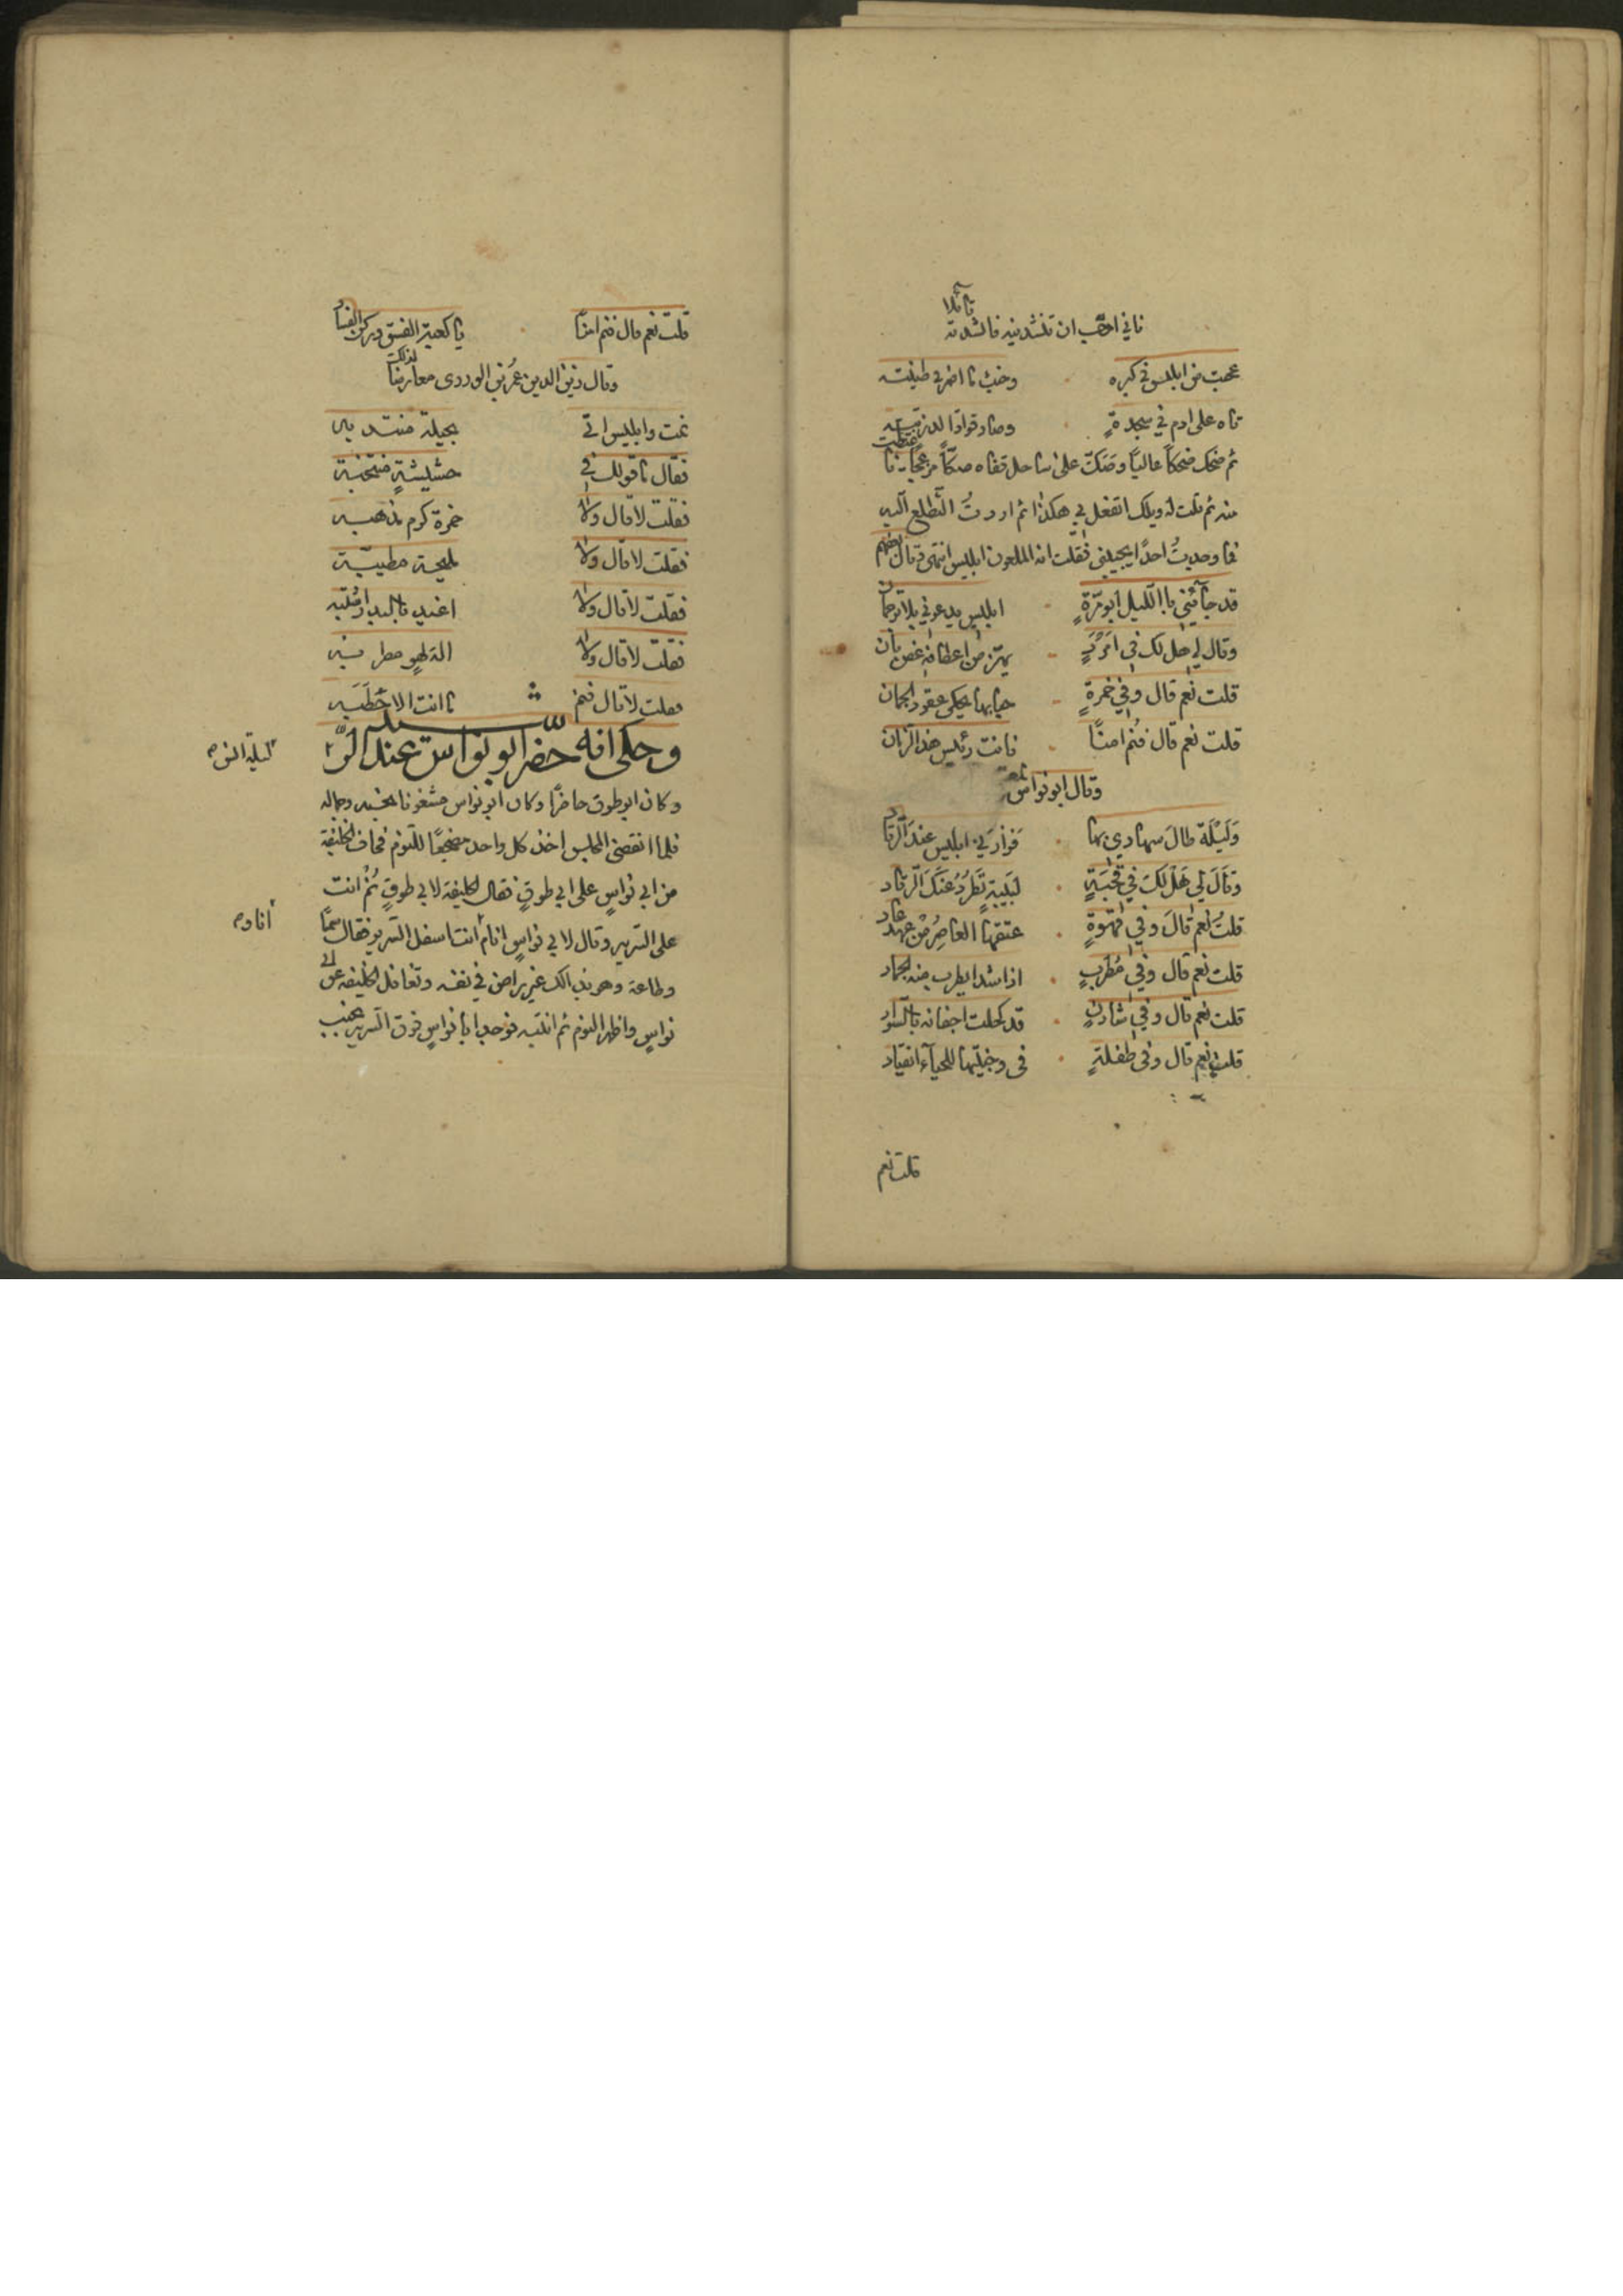 فاني احب ان تنشدنيه فانشدته قائلا
عجبت من ابليس في كبره وخبث ما اضمر في طينته
تاه على ادم في سجدةٍ وصار قوادا لذريته
ثم ضحك ضحكاً عاليًا وصكّ على ساحل قفاه صكّاً مزعجًا
منه ثم قلت له ويلك اتفعل بي هكذا ثم اردتُ التطلع اليه
فما وجدتُ احدًا يجيبني فقلت انه الملعون ابليس انتهى وقال بعضهم
قد جآئني بالليل ابو مُرّةٍ ابليس يدعوني بلا ترجمان
وقال لي هل لك في امردٍ يهتز من اعطافه غصن بان
قلت نعم قال وفي خمرةٍ حبابها يحكي عقود الجمان
قلت نعم قال فنُم امنًا فانت رئيس هذا الزمان
وقال ابو نواس
وَلَيْلَة طالَ سهادي بها فَزارَني ابليس عندَ الرّقاد
وقَالَ لي هَلْ لكَ في قحْبَةٍ لبيبةٍ تَطْرُدُ عَنكَ الرّقاد
قلتُ نعم قالَ وفي قهوةٍ عتقها العاصِرُ مِنْ عهد عاد
قلت نعم قال وفي مُطربٍ اذا شدا يطرب منه الجماد
قلت نعم قال وفي شادنٍ قد كحلت اجفانه بالسواد
قلت نعم قال وفي طفلةٍ في وجنتيها للحيآء انقياد
قلت نعم
قلت نعم قال فنم امنًا يا كعبة الفسق وركن الفساد
وقال زين الدين عمر بن الوردى معارضا لذلك
نمت وابليس اتى بحيلة منتدبه
فقال ما قولك في حشيشةٍ منتخبة
فقلت لا قال ولا خمرة كرم مذهبه
فقلت لا قال ولا مليحة مطيبة
فقلت لا قال ولا اغيد بالبدر اشتبه
فقلت لا قال ولا الة لهو مطربه
فقلت لا قال فنم ما انت الا حَطَبَه
وحكى انه حضر ابو نواس عند الرشيد
ليلة
وكان ابو طوق حاضرًا وكان ابو نواس مشغوفا بحبه وجماله
فلما انقضى المجلس اخذ كل واحد مضجعًا للنوم فخاف الخليفة
من ابي نواسٍ على ابي طوقٍ فقال الخليفة لابي طوقٍ نُمْ انت
على السرير وقال لابي نواسٍ انام انت اسفل السرير فقال سمعًا
وطاعة وهو بذالك غير راضٍ في نفسه وتغافل الخليفة عن ابي
نواسٍ واظهر النوم ثم انتبه فوجد ابا نواسٍ فوق السرير بجنب